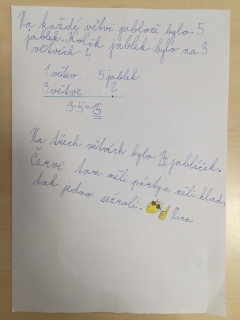 Na každé větvi jabloně bylo 5
jablek. Kolik jablek bylo na 3
větvích?
1 větev ... 5 jablek
3 větve ... ?
3·5=15
Na třech větvích bylo 14 jablíček.
Červi tam měli párty a měli hlad,
tak jedno sežrali.